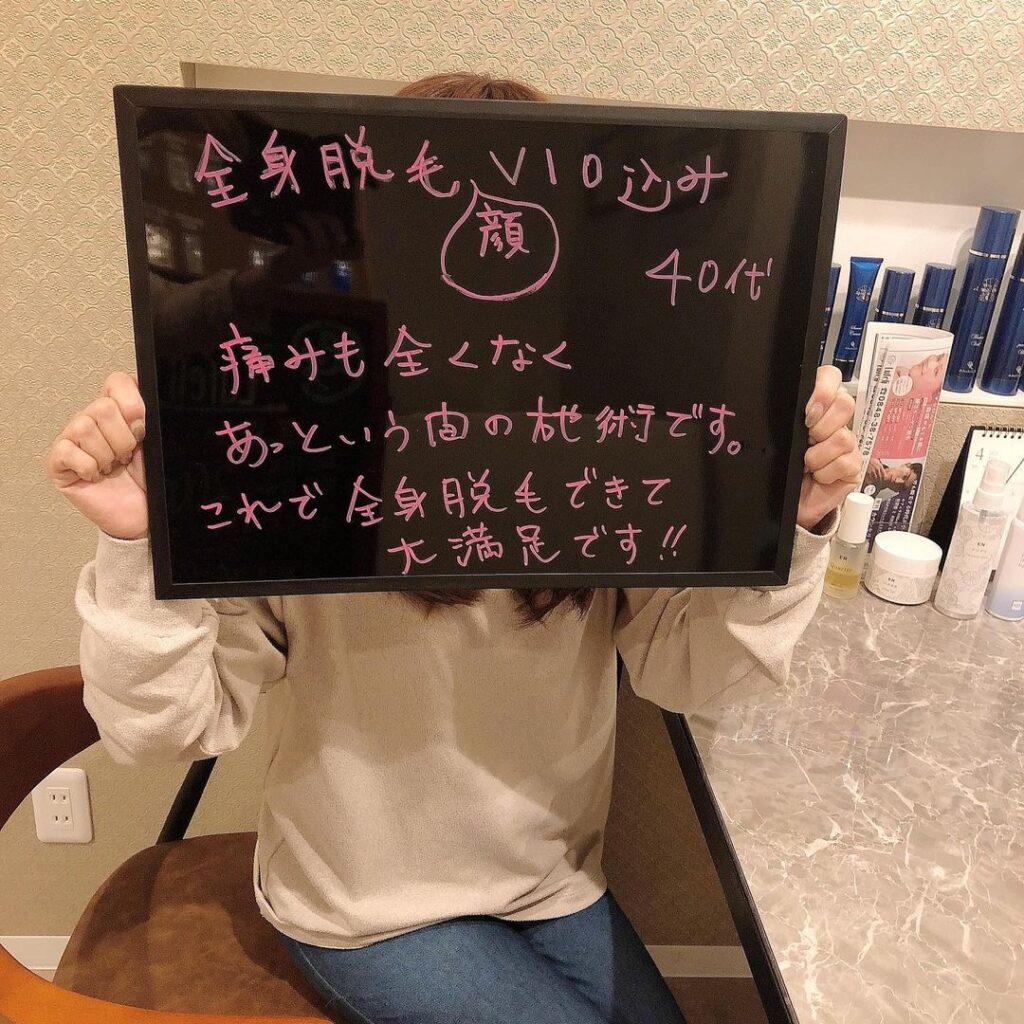 全身脱毛、VIO込み
顔
40代
痛みも全くなく
あっという間の施術です。
これで全身脱毛できて
大満足です!!
0848-38-7678
4